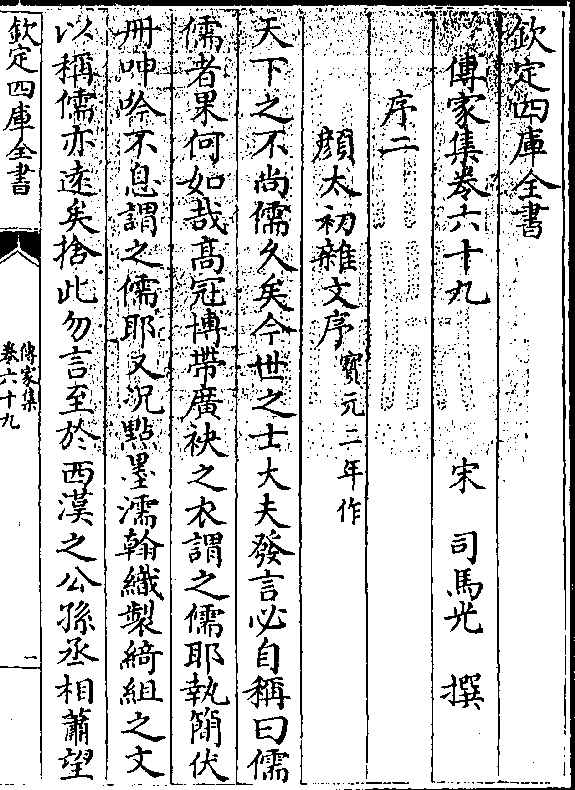 欽定四庫全書
傳家集卷六十九　宋　司馬光　撰
序二
顔太初雜文序寳元二年作
天下之不尚儒久矣今世之士大夫發言必自稱曰儒
儒者果何如哉高冠博帶廣袂之衣謂之儒耶執簡伏
冊呻吟不息謂之儒耶又况點墨濡翰織製綺組之文
以稱儒亦逺矣捨此勿言至於西漢之公孫丞相蕭望
欽定四庫全書
傳家集
卷六十九
一